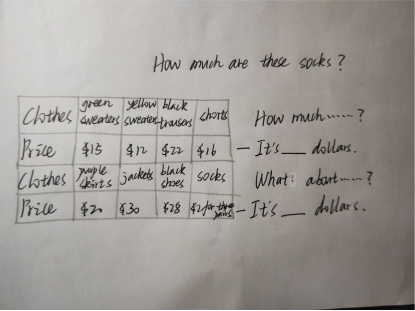 How much are these socks?
Clothes green sweaters yellow sweaters black trousers shorts How much……?
Price $15 $12 $22 $16 — It's ___ dollars.
Clothes purple skirts jackets black shoes socks What about……?
Price $20 $30 $28 $2 for three pairs — It's ___ dollars.